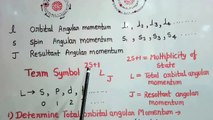 l Orbital Angular momentum l₁, l₂, l₃, l₄ .......
s Spin Angular momentum S₁, S₂, S₃, S₄ .....
J Resultant Angular momentum
2S+1 = Multiplicity of State
Term Symbol 2S+1 L J
L = Total orbital angular momentum
L → S, P, d,
0 1 2
J =
1) Determine Total orbital angular Momentum →